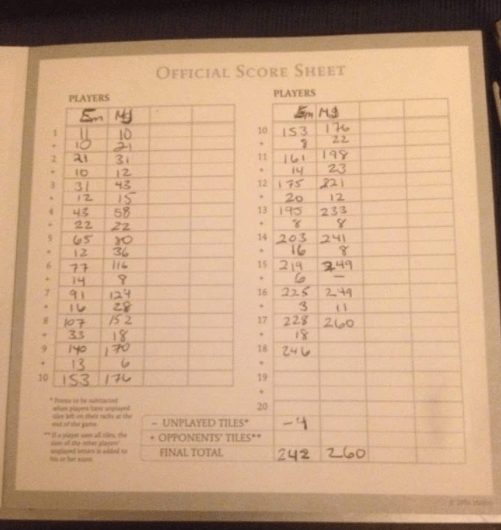 OFFICIAL SCORE SHEET
PLAYERS
Em MJ
1 11 10
+ 10 21
2 21 31
+ 10 12
3 31 43
+ 12 15
4 43 58
+ 22 22
5 65 80
+ 12 36
6 77 116
+ 14 8
7 91 124
+ 16 28
8 107 152
+ 33 18
9 140 170
+ 13 6
10 153 176
* Points to be subtracted
when players have unplayed
tiles left on their racks at the
end of the game
** If a player uses all tiles, the
sum of the other players'
unplayed letters is added to
his or her score
PLAYERS
Em MJ
10 153 176
+ 8 22
11 161 198
+ 14 23
12 175 221
+ 20 12
13 195 233
+ 8 8
14 203 241
+ 16 8
15 219 249
+ 6 –
16 225 249
+ 3 11
17 228 260
+ 18
18 246
+
19
+
20
– UNPLAYED TILES* -4
+ OPPONENTS' TILES**
FINAL TOTAL 242 260